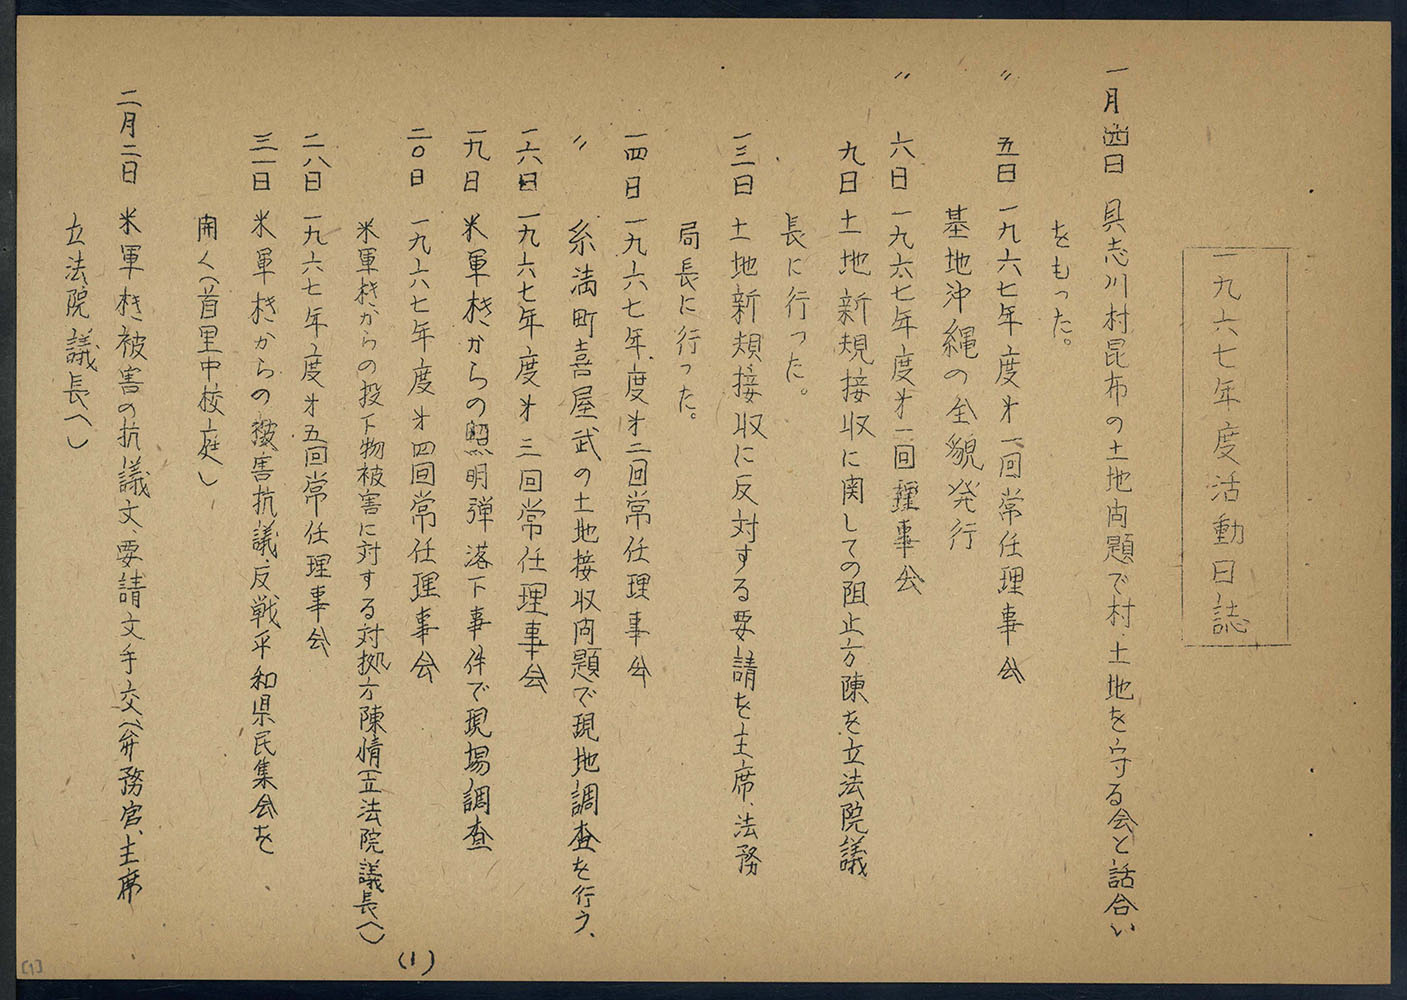 一九六七年度活動日誌
一月四日 具志川村昆布の土地问題で村、土地を守る会と話合い
をもった。
〃 五日 一九六七年度才一回常任理事会
基地沖縄の全貌発行
〃 六日 一九六七年度才一回理事会
九日 土地新規接収に関しての阻止方陳を立法院議
長に行った。
一三日 土地新規接収に反対する要請を主席、法務
局長に行った。
一四日 一九六七年度才二回常任理事会
〃 糸満町喜屋武の土地接収问題で現地調査を行う、
一六日 一九六七年度才三回常任理事会
一九日 米軍机からの照明弾落下事件で現場調査
二〇日 一九六七年度才四回常任理事会
米軍机からの投下物被害に対する対拠方陳情(立法院議長へ)
二八日 一九六七年度才五回常任理事会
三一日 米軍机からの被害抗議、反戦平和県民集会を
開く(首里中校庭)
二月二日 米軍机被害の抗議文、要請文手交(弁務官、主席
立法院議長へ)
(1)
[1]